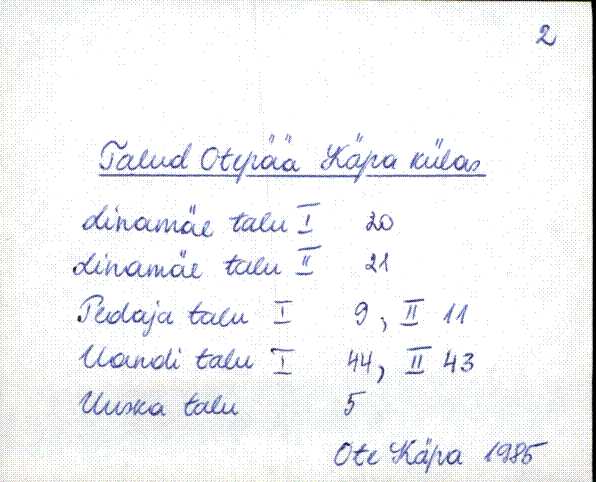 2
Talud Otepää Käpa külas
Linamäe talu I 20
Linamäe talu II 21
Pedaja talu I 9, II 11
Kandi talu I 44, II 43
talu 5
Ote Käpa 1985